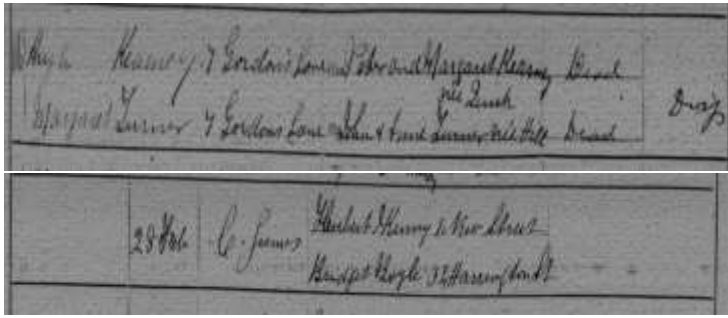 Hugh Kearney 7 Gordon's Lane Peter and Margaret Kearney Dead
née
Margaret Turner 7 Gordon's Lane John & Anne Turner née Hill Dead
28 Feb C. James Herbert Kenny New Street
Bridget Boyle 32 Harrington St